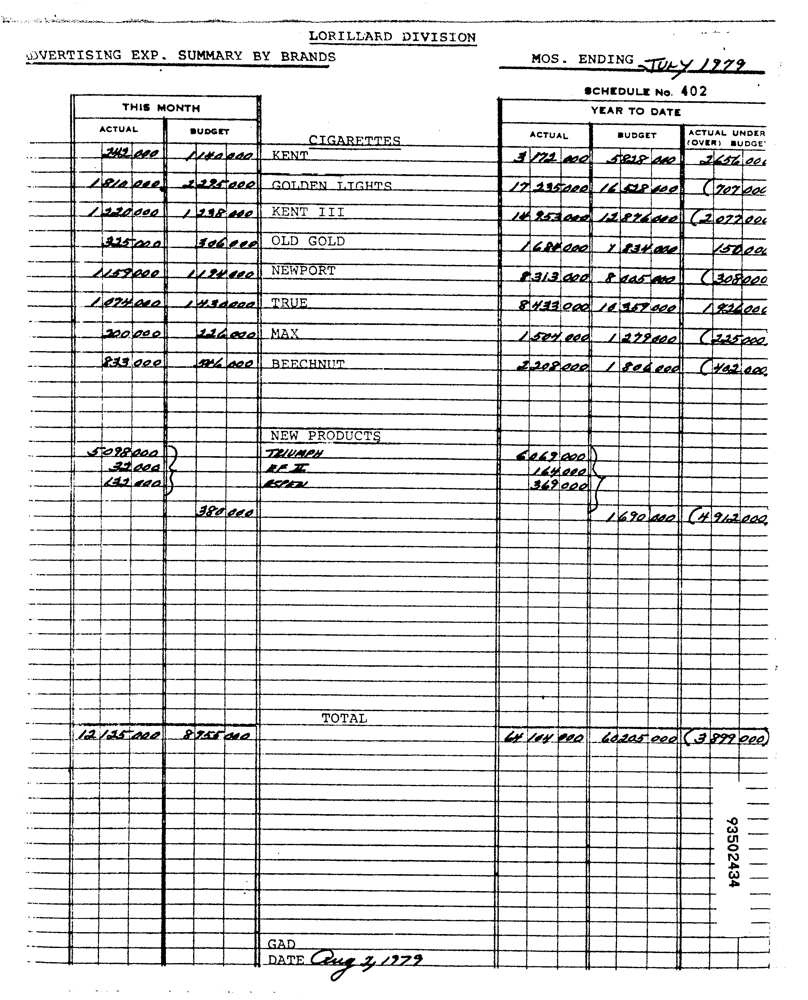 LORILLARD DIVISION
ADVERTISING EXP. SUMMARY BY BRANDS MOS. ENDING JULY 1979
SCHEDULE No. 402
THIS MONTH YEAR TO DATE
ACTUAL BUDGET CIGARETTES ACTUAL BUDGET ACTUAL UNDER (OVER) BUDGET
242 000 1 140 000 KENT 3 172 000 5 828 000 2 656 000
1 810 000 2 295 000 GOLDEN LIGHTS 17 235 000 16 528 000 (707 000
1 220 000 1 238 000 KENT III 14 953 000 12 876 000 (2 077 000
325 000 306 000 OLD GOLD 1 684 000 1 834 000 150 000
1 159 000 1 194 000 NEWPORT 8 313 000 8 005 000 (308 000
1 074 000 1 430 000 TRUE 8 433 000 10 359 000 1 926 000
200 000 226 000 MAX 1 504 000 1 279 000 (225 000
833 000 746 000 BEECHNUT 2 208 000 1 806 000 (402 000
NEW PRODUCTS
5 098 000 TRIUMPH 6 069 000
32 000 RF II 164 000
132 000 ASPEN 369 000
380 000 1 690 000 (4 912 000
TOTAL
12 125 000 8 955 000 64 104 000 60 205 000 (3 899 000)
93502434
GAD
DATE Aug 2, 1979